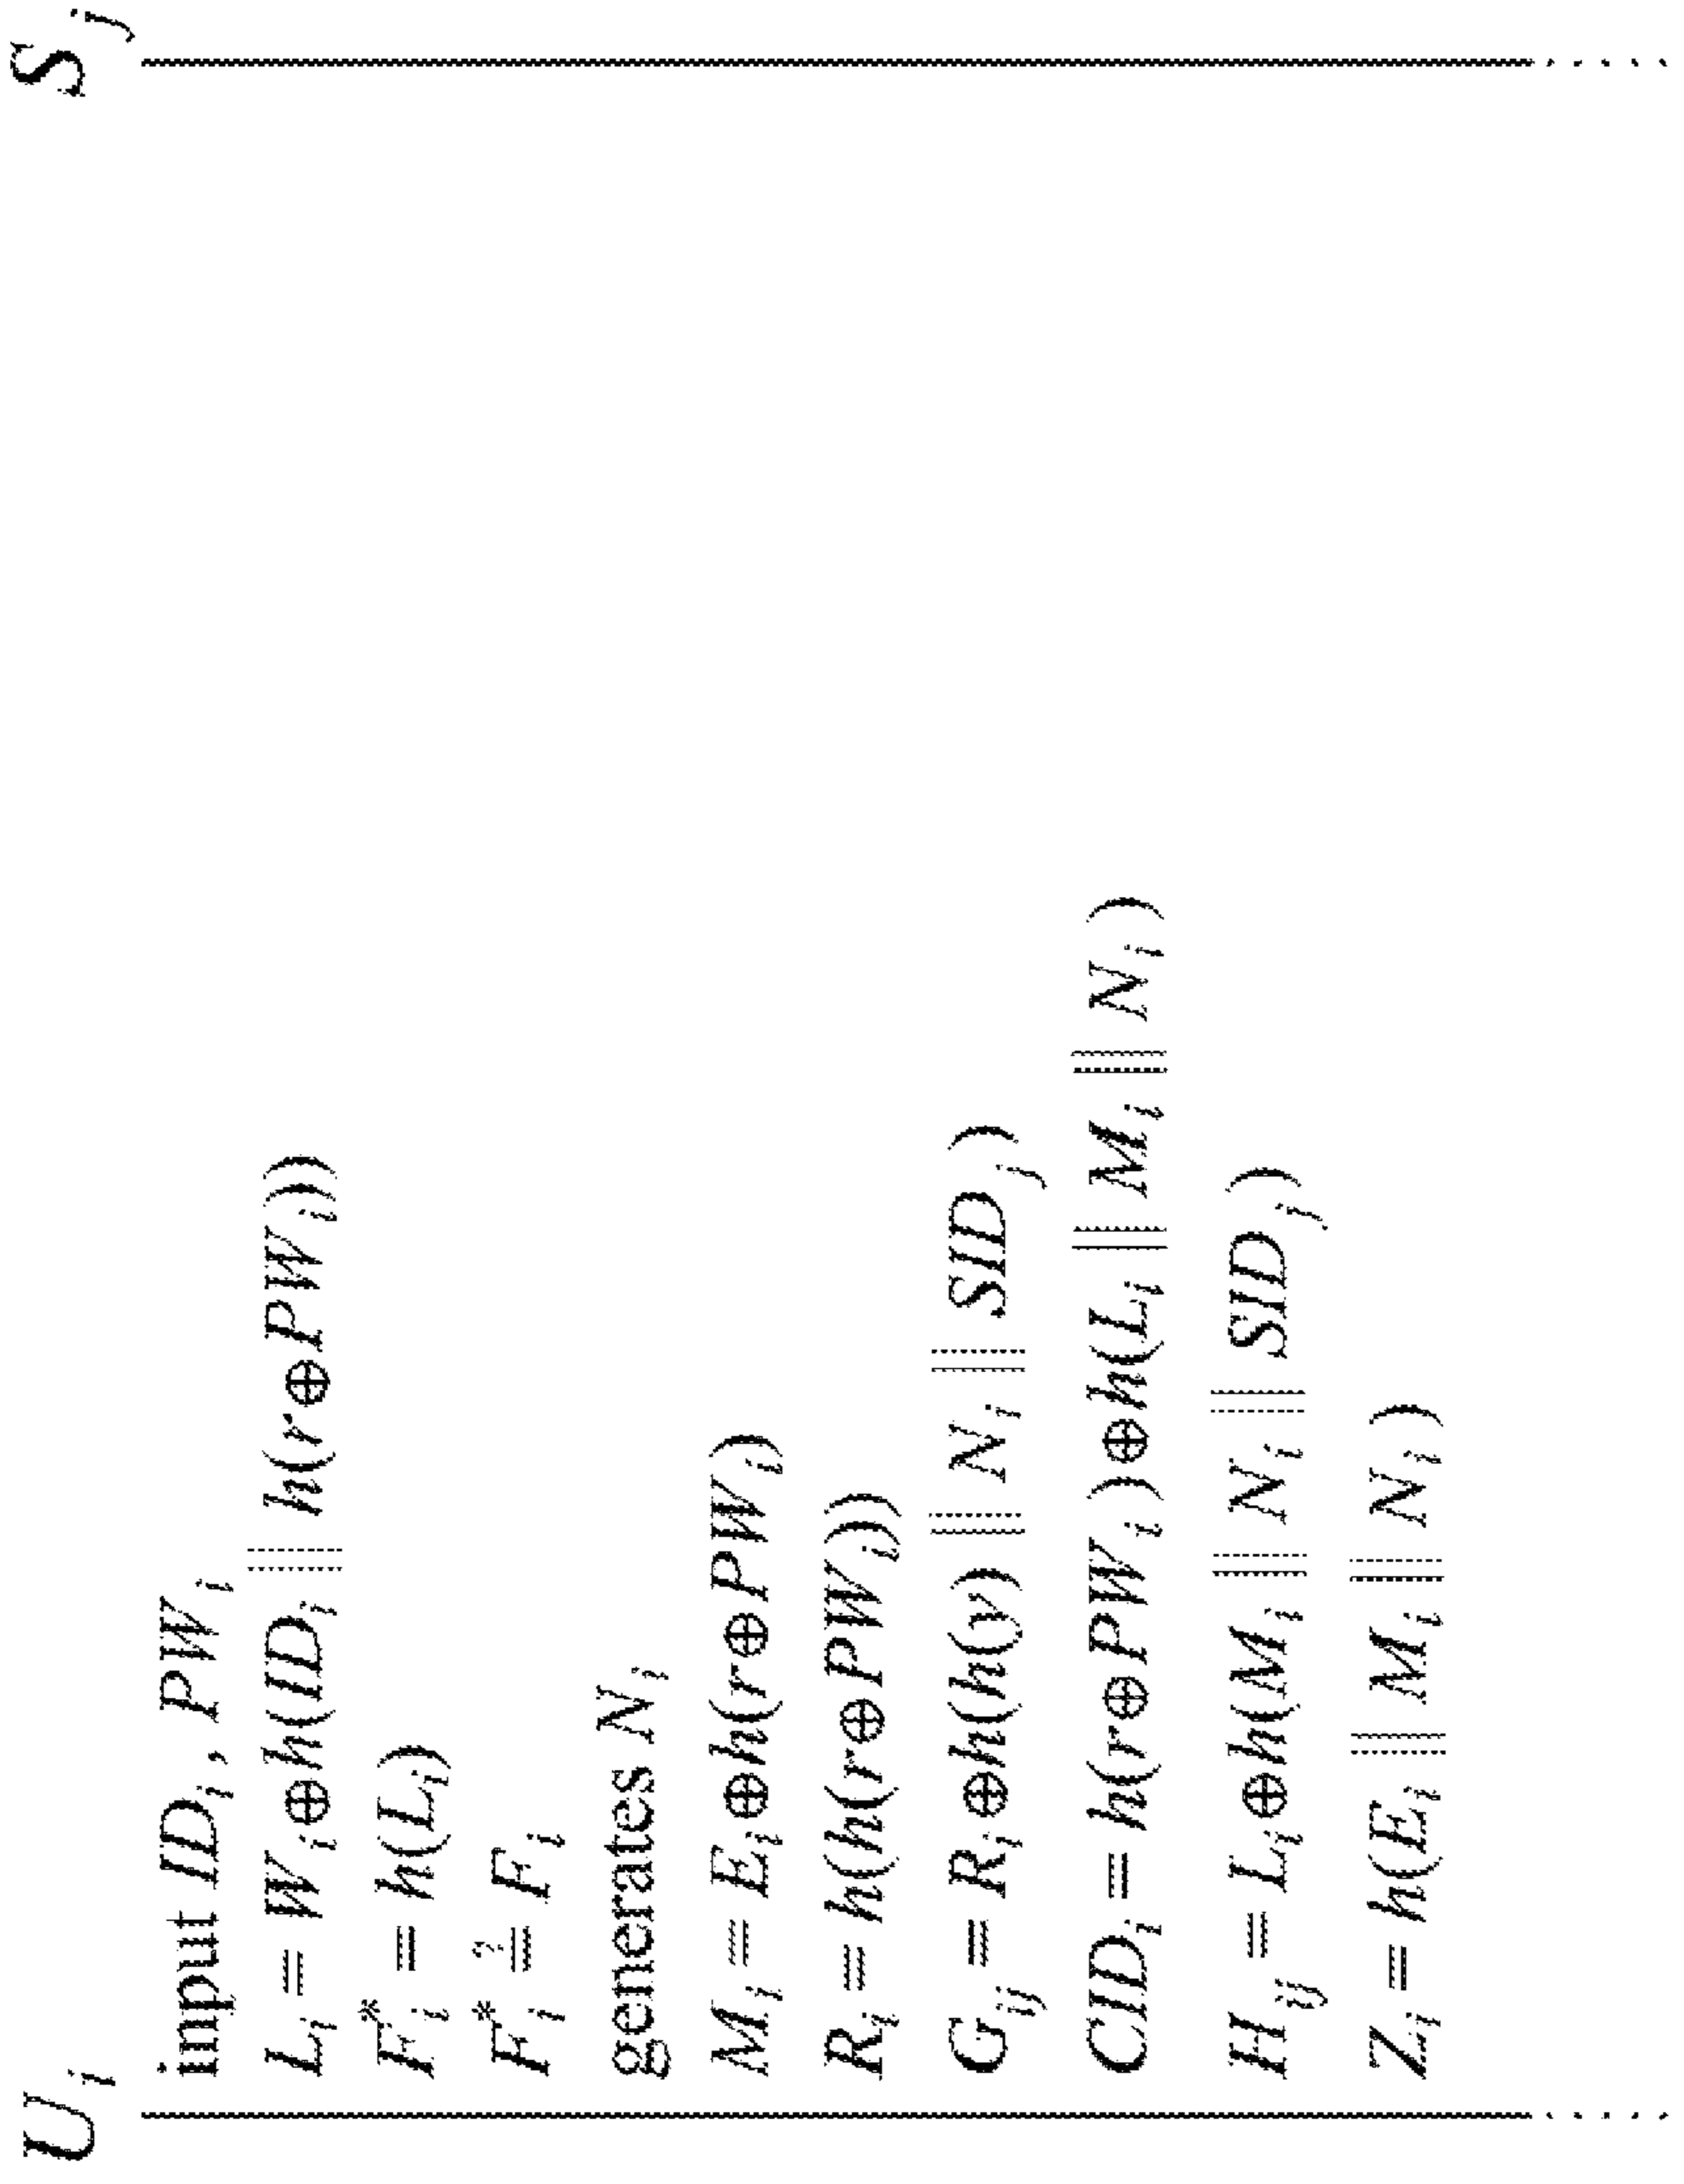 U_i S_j
input ID_i, PW_i
L_i = W_i⊕h(ID_i || h(r⊕PW_i))
F*_i = h(L_i)
F*_i ≟ F_i
generates N_i
M_i = E_i⊕h(r⊕PW_i)
R_i = h(h(r⊕PW_i))
G_ij = R_i⊕h(h(y) || N_i || SID_j)
CID_i = h(r⊕PW_i)⊕h(L_i || M_i || N_i)
H_ij = L_i⊕h(M_i || N_i || SID_j)
Z_i = h(E_i || M_i || N_i)